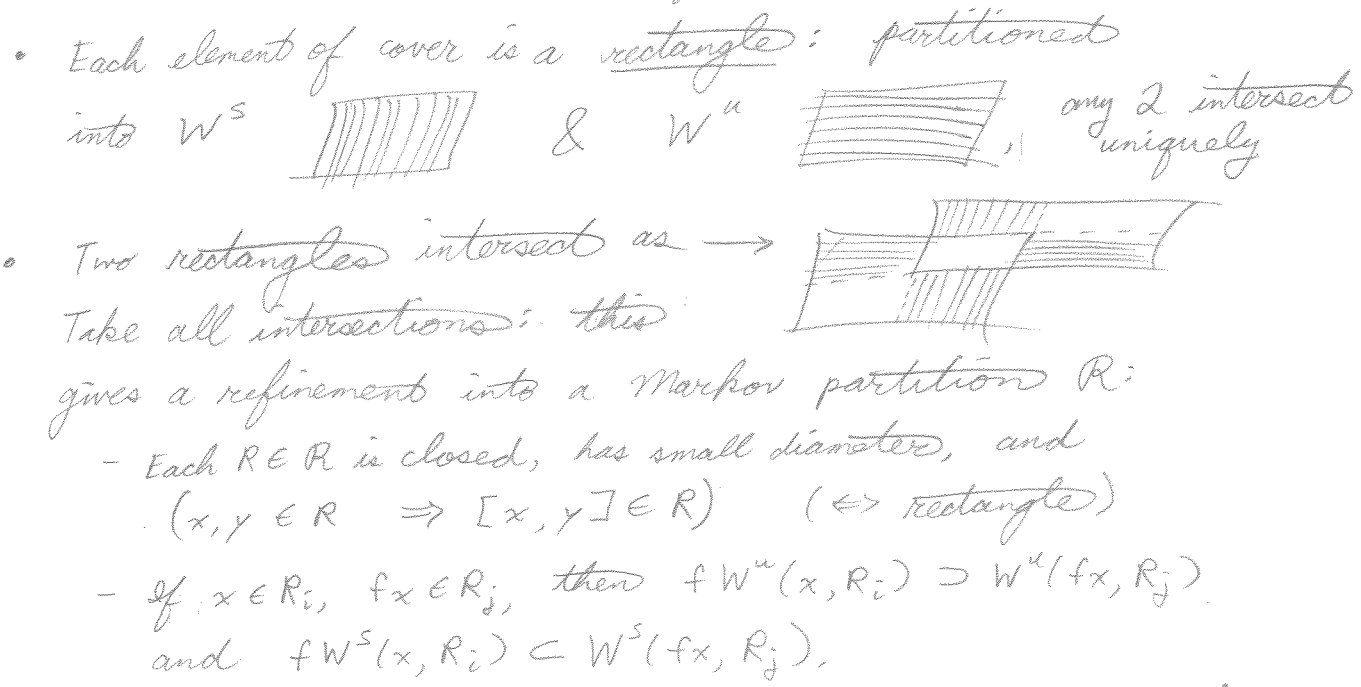 • Each element of cover is a rectangle: partitioned
into W^s & W^u, any 2 intersect
uniquely
• Two rectangles intersect as →
Take all intersections: this
gives a refinement into a Markov partition R:
- Each R ∈ R is closed, has small diameter, and
(x, y ∈ R ⇒ [x, y] ∈ R) (⇔ rectangle)
- If x ∈ R_i, fx ∈ R_j, then f W^u(x, R_i) ⊃ W^u(fx, R_j)
and f W^s(x, R_i) ⊂ W^s(fx, R_j).